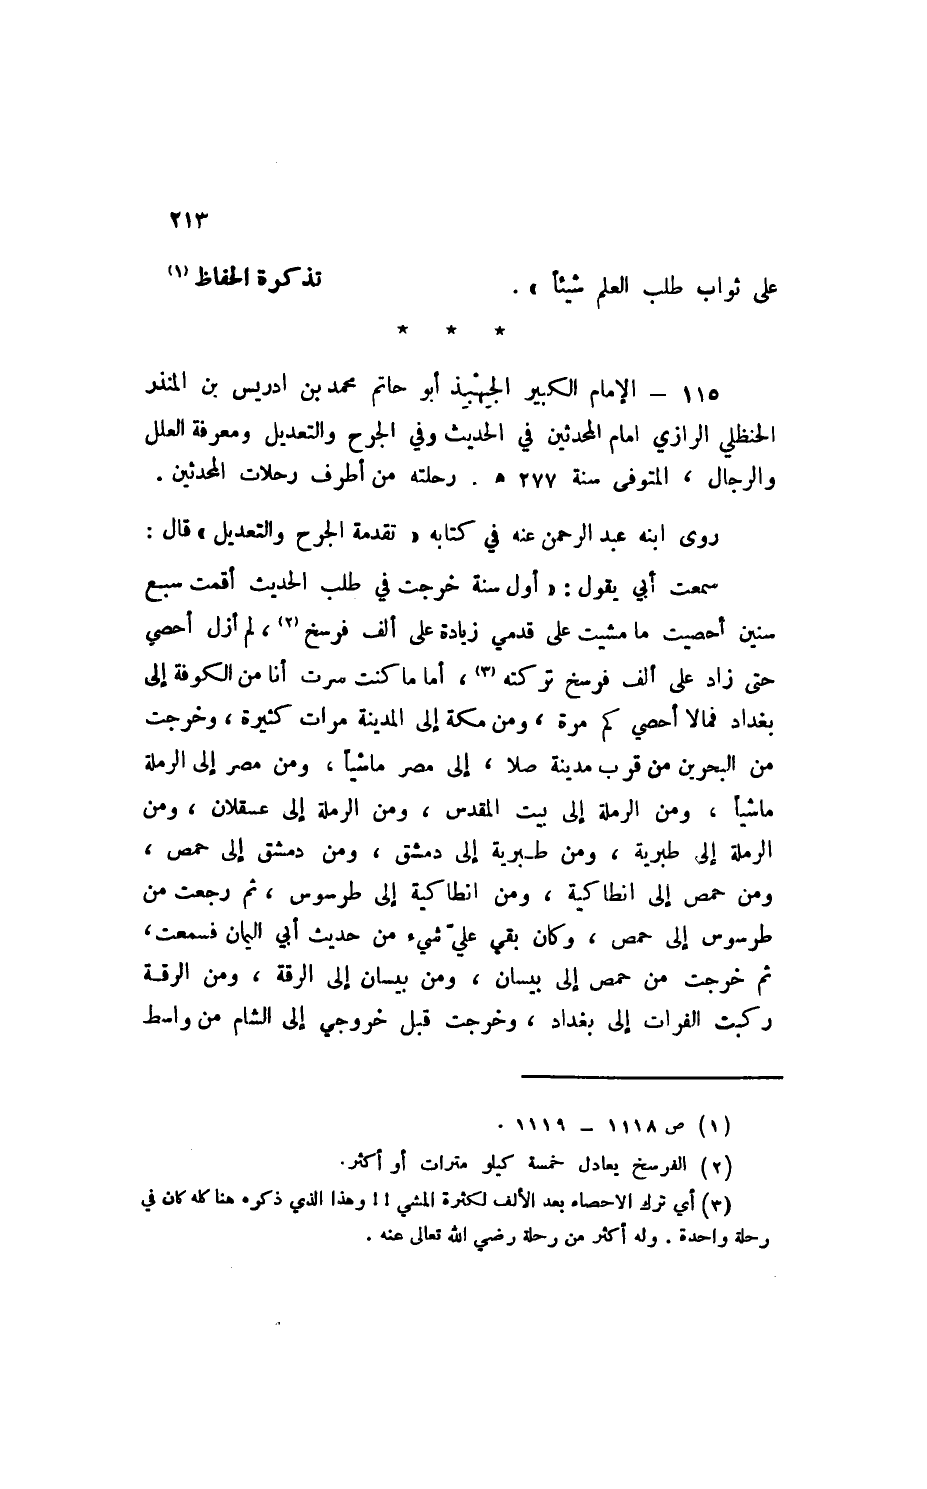 ٢١٣
على ثواب طلب العلم شيئاً » . تذكرة الحفاظ (١)
* * *
١١٥ – الإمام الكبير الجِهْبِذ أبو حاتم محمد بن ادريس بن المنذر
الحنظلي الرازي امام المحدثين في الحديث وفي الجرح والتعديل ومعرفة العلل
والرجال ، المتوفى سنة ٢٧٧ ه . رحلته من أطرف رحلات المحدثين .
روى ابنه عبد الرحمن عنه في كتابه « تقدمة الجرح والتعديل » قال :
سمعت أبي يقول : « أول سنة خرجت في طلب الحديث أقمت سبع
سنين أحصيت ما مشيت على قدمي زيادة على ألف فرسخ (٢) ، لم أزل أحصي
حتى زاد على ألف فرسخ تركته (٣) ، أما ما كنت سرت أنا من الكوفة إلى
بغداد فمالا أحصي كم مرة ، ومن مكة إلى المدينة مرات كثيرة ، وخرجت
من البحرين من قرب مدينة صلا ، إلى مصر ماشياً ، ومن مصر إلى الرملة
ماشياً ، ومن الرملة إلى بيت المقدس ، ومن الرملة إلى عسقلان ، ومن
الرملة إلى طبرية ، ومن طـبرية إلى دمشق ، ومن دمشق إلى حمص ،
ومن حمص إلى انطاكية ، ومن انطاكية إلى طرسوس ، ثم رجعت من
طرسوس إلى حمص ، وكان بقي عليّ شيء من حديث أبي اليمان فسمعت ،
ثم خرجت من حمص إلى بيسان ، ومن بيسان إلى الرقة ، ومن الرقـة
ركبت الفرات إلى بغداد ، وخرجت قبل خروجي إلى الشام من واسط
(١) ص ١١١٨ – ١١١٩ .
(٢) الفرسخ يعادل خمسة كيلو مترات أو أكثر.
(٣) أي ترك الاحصاء بعد الألف لكثرة المشي !! وهذا الذي ذكره هنا كله كان في
رحلة واحدة . وله أكثر من رحلة رضي الله تعالى عنه .